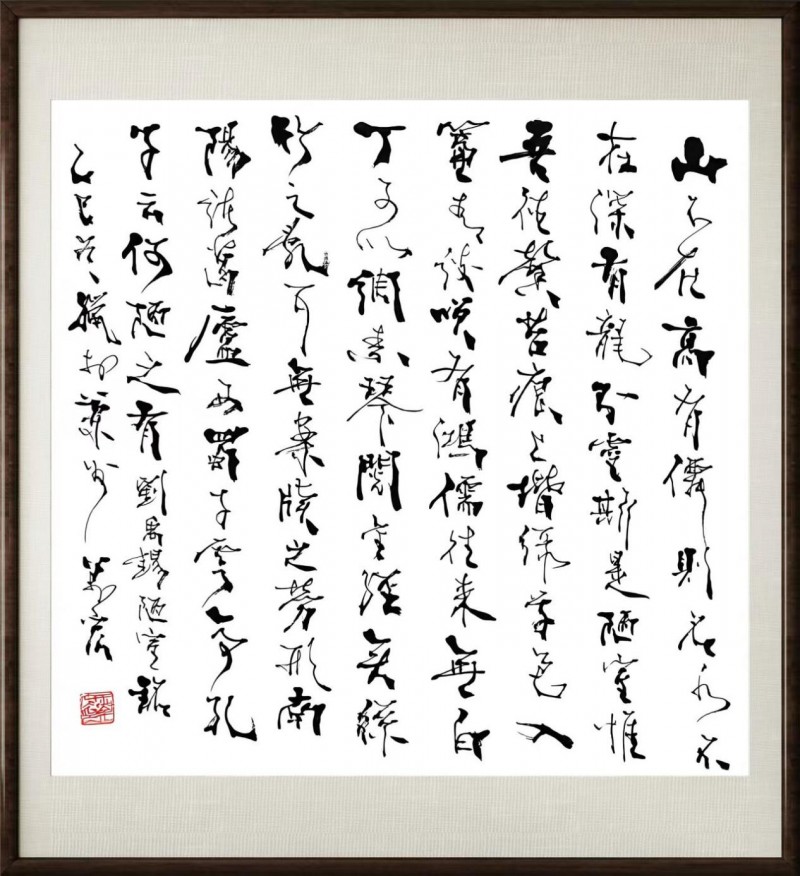 山不在高有僊則名水不
在深有龍則靈斯是陋室惟
吾德馨苔痕上堦綠草色入
簾青談咲有鴻儒往來無白
丁可以調素琴閱金經無絲
竹之亂耳無案牘之勞形南
陽諸葛廬西蜀子雲亭孔
子云何陋之有劉禹錫陋室銘
乙巳